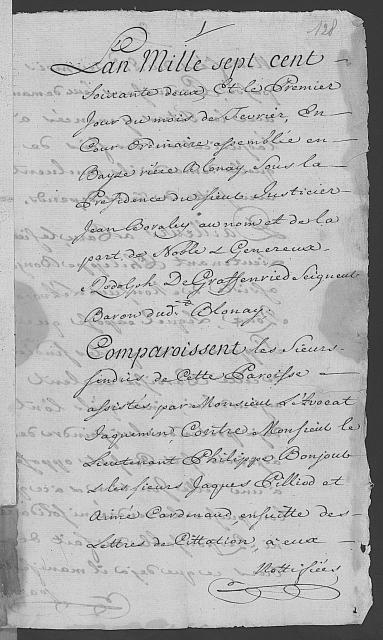 1
128
Lan Mille sept cent
Soixante deux, Et le Premier
Jour du mois de Fevrier, En
Cour Ordinaire assemblée en
Bayse riere Blonay, Sous la
Présidence du sieur Justicier
Jean Boraley au nom et de la
part de Noble & Genereux
Rodolph De Graffenried Seigneur
Baron dud.t Blonay.
Comparoissent les Sieurs
sindics de Cette Paroisse
assistés par Monsieur L'avocat
Jaquemin, Contre Monsieur le
Lieutenant Philippe Bonjour
& les sieurs Jaques Pilliod et
Aimé Cardinaud ensuitte des
Lettres de Cittation, a eux
Nottifiées